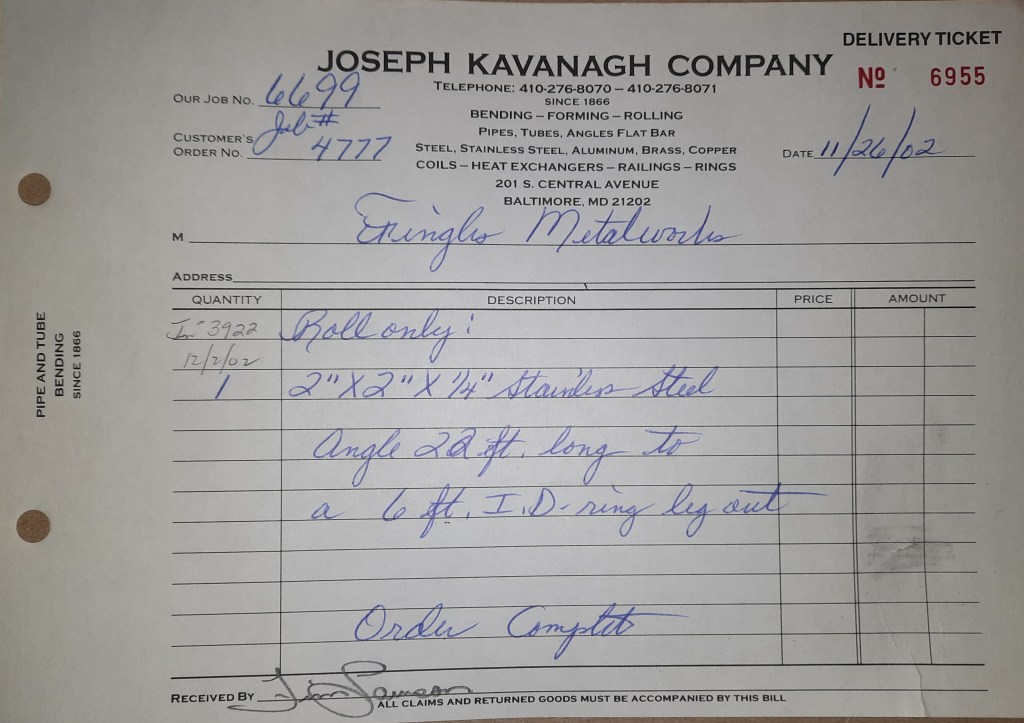 DELIVERY TICKET
JOSEPH KAVANAGH COMPANY
Nº 6955
TELEPHONE: 410-276-8070 – 410-276-8071
SINCE 1866
BENDING – FORMING – ROLLING
PIPES, TUBES, ANGLES FLAT BAR
STEEL, STAINLESS STEEL, ALUMINUM, BRASS, COPPER
COILS – HEAT EXCHANGERS – RAILINGS – RINGS
201 S. CENTRAL AVENUE
BALTIMORE, MD 21202
OUR JOB NO. 6699
CUSTOMER'S ORDER NO. Job # 4777
DATE 11/26/02
M Metalworks
ADDRESS
QUANTITY DESCRIPTION PRICE AMOUNT
3922 Roll only:
12/2/02
1 2" X 2" X 1/4" Stainless Steel
Angle 22 ft. long to
a 6 ft. I.D. ring leg out
Order Complet
RECEIVED BY
ALL CLAIMS AND RETURNED GOODS MUST BE ACCOMPANIED BY THIS BILL
PIPE AND TUBE
BENDING
SINCE 1866